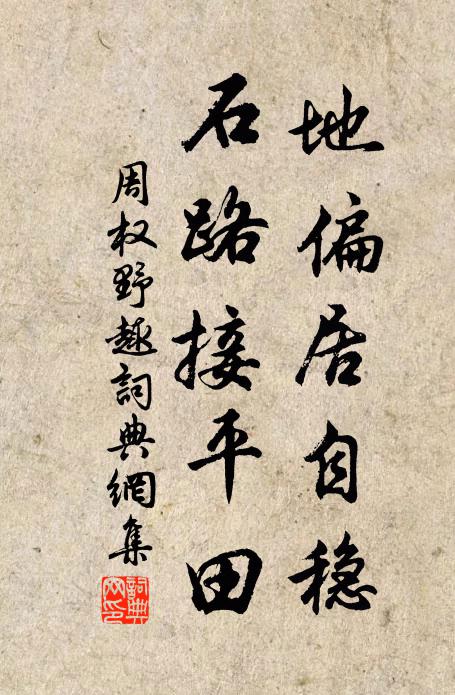 地偏居自稳
石路接平田
周权野趣詞典網集
詞典